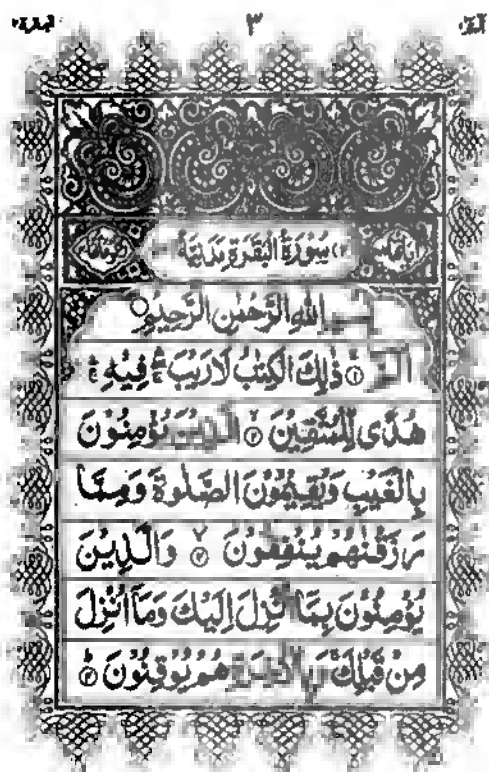 ٣
سُوْرَةُ الْبَقَرَةِ مَدَنِيَّةٌ
بِسْمِ اللهِ الرَّحْمٰنِ الرَّحِيْمِ
الٓمّٓ ۝١ ذٰلِكَ الْكِتٰبُ لَا رَيْبَ ۛ فِيْهِ ۛ
هُدًى لِّلْمُتَّقِيْنَ ۝٢ الَّذِيْنَ يُؤْمِنُوْنَ
بِالْغَيْبِ وَيُقِيْمُوْنَ الصَّلٰوةَ وَمِمَّا
رَزَقْنٰهُمْ يُنْفِقُوْنَ ۝٣ وَالَّذِيْنَ
يُؤْمِنُوْنَ بِمَآ اُنْزِلَ اِلَيْكَ وَمَآ اُنْزِلَ
مِنْ قَبْلِكَ ۚ وَبِالْاٰخِرَةِ هُمْ يُوْقِنُوْنَ ۝٤